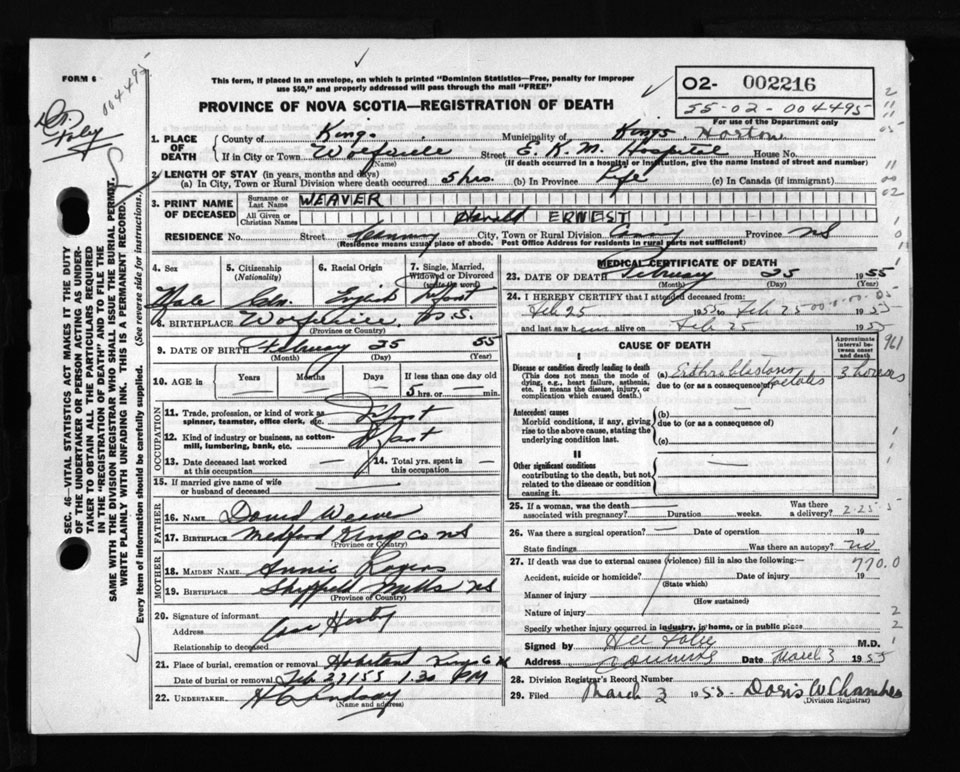 FORM 6
004495
This form, if placed in an envelope, on which is printed "Dominion Statistics—Free, penalty for improper
use $50," and properly addressed will pass through the mail "FREE"
O2- 002216
55-02-004495
For use of the Department only
PROVINCE OF NOVA SCOTIA—REGISTRATION OF DEATH
1. PLACE OF DEATH
County of Kings Municipality of Kings Horton
If in City or Town Wolfville Street E. K. M. Hospital House No.
(Name) (If death occurred in a hospital or institution, give name instead of street and number)
2. LENGTH OF STAY (in years, months and days)
(a) In City, Town or Rural Division where death occurred 5 hrs. (b) In Province Life (c) In Canada (if immigrant)
3. PRINT NAME OF DECEASED
Surname or Last Name WEAVER
All Given or Christian Names Harold ERNEST
RESIDENCE No. Street City, Town or Rural Division Province NS
(Residence means usual place of abode. Post Office Address for residents in rural parts not sufficient)
4. Sex Male
5. Citizenship (Nationality) Cdn.
6. Racial Origin English
7. Single, Married, Widowed or Divorced (write the word) Infant
8. BIRTHPLACE Wolfville, N.S.
(Province or Country)
9. DATE OF BIRTH February 25 55
(Month) (Day) (Year)
10. AGE in Years Months Days If less than one day old
— — — 5 hrs. or min.
OCCUPATION
11. Trade, profession, or kind of work as spinner, teamster, office clerk, etc. Infant
12. Kind of industry or business, as cotton-mill, lumbering, bank, etc. Infant
13. Date deceased last worked at this occupation —
14. Total yrs. spent in this occupation —
15. If married give name of wife or husband of deceased —
FATHER
16. NAME David Weaver
17. BIRTHPLACE Medford Kings Co NS
(Province or Country)
MOTHER
18. MAIDEN NAME Annie Rogers
19. BIRTHPLACE Sheffield Mills NS
(Province of Country)
20. Signature of informant
Address
Relationship to deceased
21. Place of burial, cremation or removal Kings Co
Date of burial or removal Feb 27/55 1.30 PM
22. UNDERTAKER H C Lindsay
(Name and address)
MEDICAL CERTIFICATE OF DEATH
23. DATE OF DEATH February 25 1955
(Month) (Day)
24. I HEREBY CERTIFY that I attended deceased from:
Feb 25 1955 to Feb 25 1955
and last saw him alive on Feb 25 1955
CAUSE OF DEATH
Approximate interval between onset and death
961
I
Disease or condition directly leading to death
(This does not mean the mode of dying, e.g., heart failure, asthenia, etc. It means the disease, injury, or complication which caused death.)
(a) 3 hours
due to (or as a consequence of)
Antecedent causes
Morbid conditions, if any, giving rise to the above cause, stating the underlying condition last.
(b) —
due to (or as a consequence of)
(c)
II
Other significant conditions
contributing to the death, but not related to the disease or condition causing it.
—
25. If a woman, was the death associated with pregnancy? Duration weeks. Was there a delivery? 2-25-5
26. Was there a surgical operation? — Date of operation 19
State findings Was there an autopsy? no
27. If death was due to external causes (violence) fill in also the following:— 770.0
Accident, suicide or homicide? Date of injury 19
(State which)
Manner of injury
(How sustained)
Nature of injury
Specify whether injury occurred in industry, in home, or in public place
Signed by M.D.
Address Canning Date March 3 1955
28. Division Registrar's Record Number
29. Filed March 3 1955 Doris W Chambers
(Division Registrar)
SEC. 46—VITAL STATISTICS ACT MAKES IT THE DUTY
OF THE UNDERTAKER OR PERSON ACTING AS UNDER-
TAKER TO OBTAIN ALL THE PARTICULARS REQUIRED
IN THE "REGISTRATION OF DEATH" AND TO FILE THE
SAME WITH THE DIVISION REGISTRAR WHO SHALL ISSUE THE BURIAL PERMIT.
WRITE PLAINLY WITH UNFADING INK. THIS IS A PERMANENT RECORD.
Every item of information should be carefully supplied. (See reverse side for instructions.)